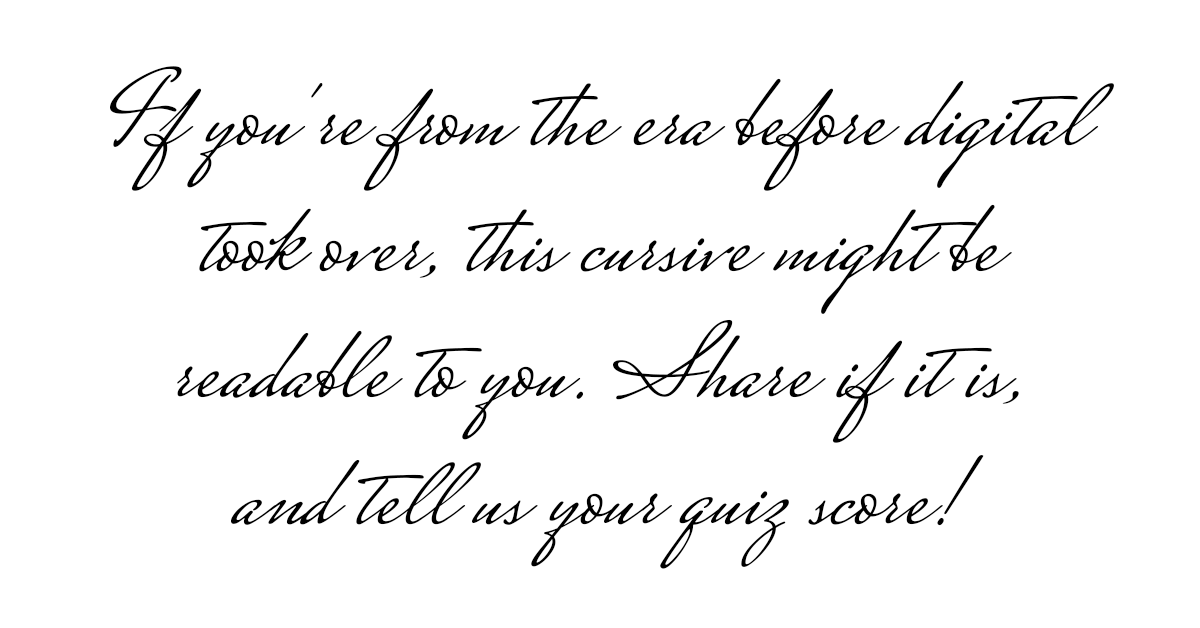 If you're from the era before digital
took over, this cursive might be
readable to you. Share if it is,
and tell us your quiz score!